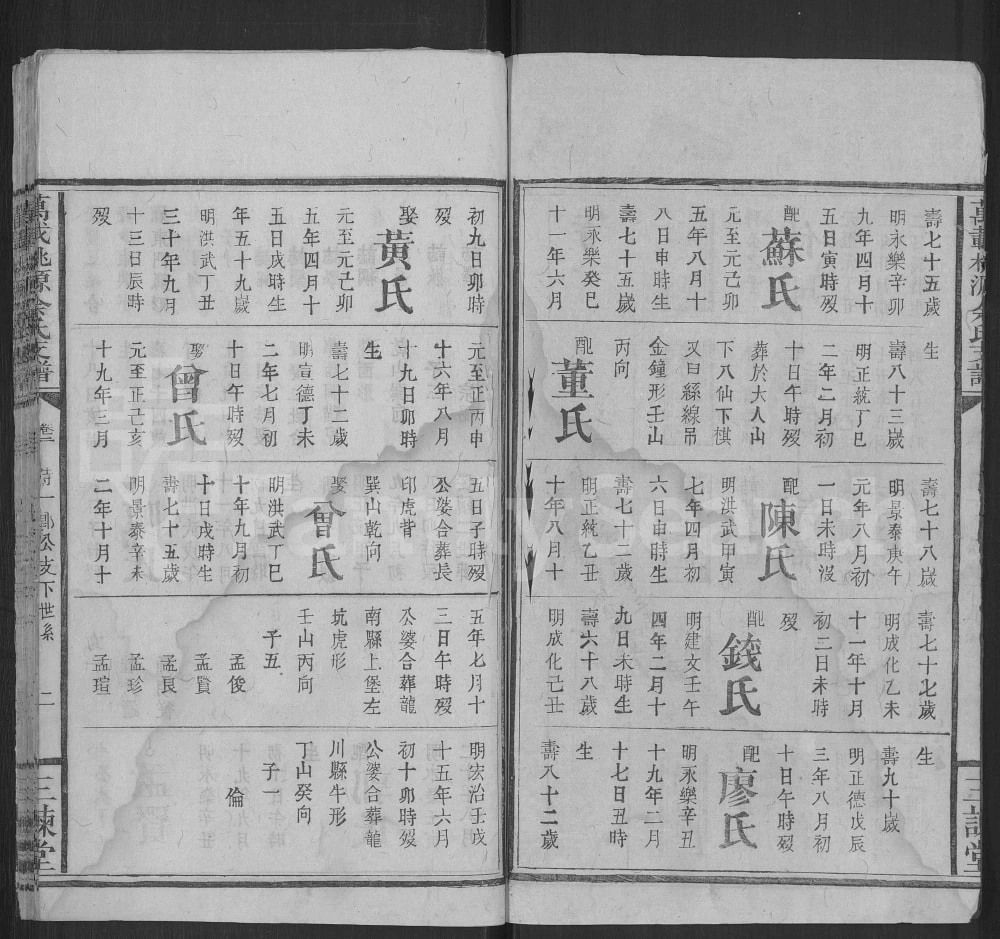 萬載桃源余氏支譜
壽七十五歲
明永樂辛卯
九年四月十
五日寅時歿
配蘇氏
元至元己卯
五年八月十
八日申時生
壽七十五歲
明永樂癸巳
十一年六月
生
壽八十三歲
明正統丁巳
二年二月初
十日午時歿
葬於大人山
下八仙下棋
又曰縣線吊
金鐘形壬山
丙向
配董氏
壽七十八歲
明景泰庚午
元年八月初
一日未時沒
配陳氏
明洪武甲寅
七年四月初
六日申時生
壽七十二歲
明正統乙丑
十年八月十
壽七十七歲
明成化乙未
十一年十月
初三日未時
歿
配錢氏
明建文壬午
四年二月十
九日未時生
壽六十八歲
明成化己丑
生
壽九十歲
明正德戊辰
三年八月初
十日午時歿
配廖氏
明永樂辛丑
十九年二月
十七日丑時
生
壽八十二歲
初九日卯時
歿
娶黃氏
元至元己卯
五年四月十
五日戌時生
年五十九歲
明洪武丁丑
三十年九月
十三日辰時
歿
元至正丙申
十六年八月
十九日卯時
生
壽七十二歲
明宣德丁未
二年七月初
十日午時歿
娶曾氏
元至正己亥
十九年三月
五日子時歿
公婆合葬長
印虎背
巽山乾向
娶會氏
明洪武丁巳
十年九月初
十日戌時生
壽七十五歲
明景泰辛未
二年十月十
五年七月十
三日午時歿
公婆合葬龍
南縣上堡左
坑虎形
壬山丙向
子五
孟俊
孟賢
孟良
孟珍
孟瑄
明宏治壬戌
十五年六月
初十卯時歿
公婆合葬龍
川縣牛形
丁山癸向
子一
倫
萬載桃源余氏支譜
公支下世系
二
三諫堂